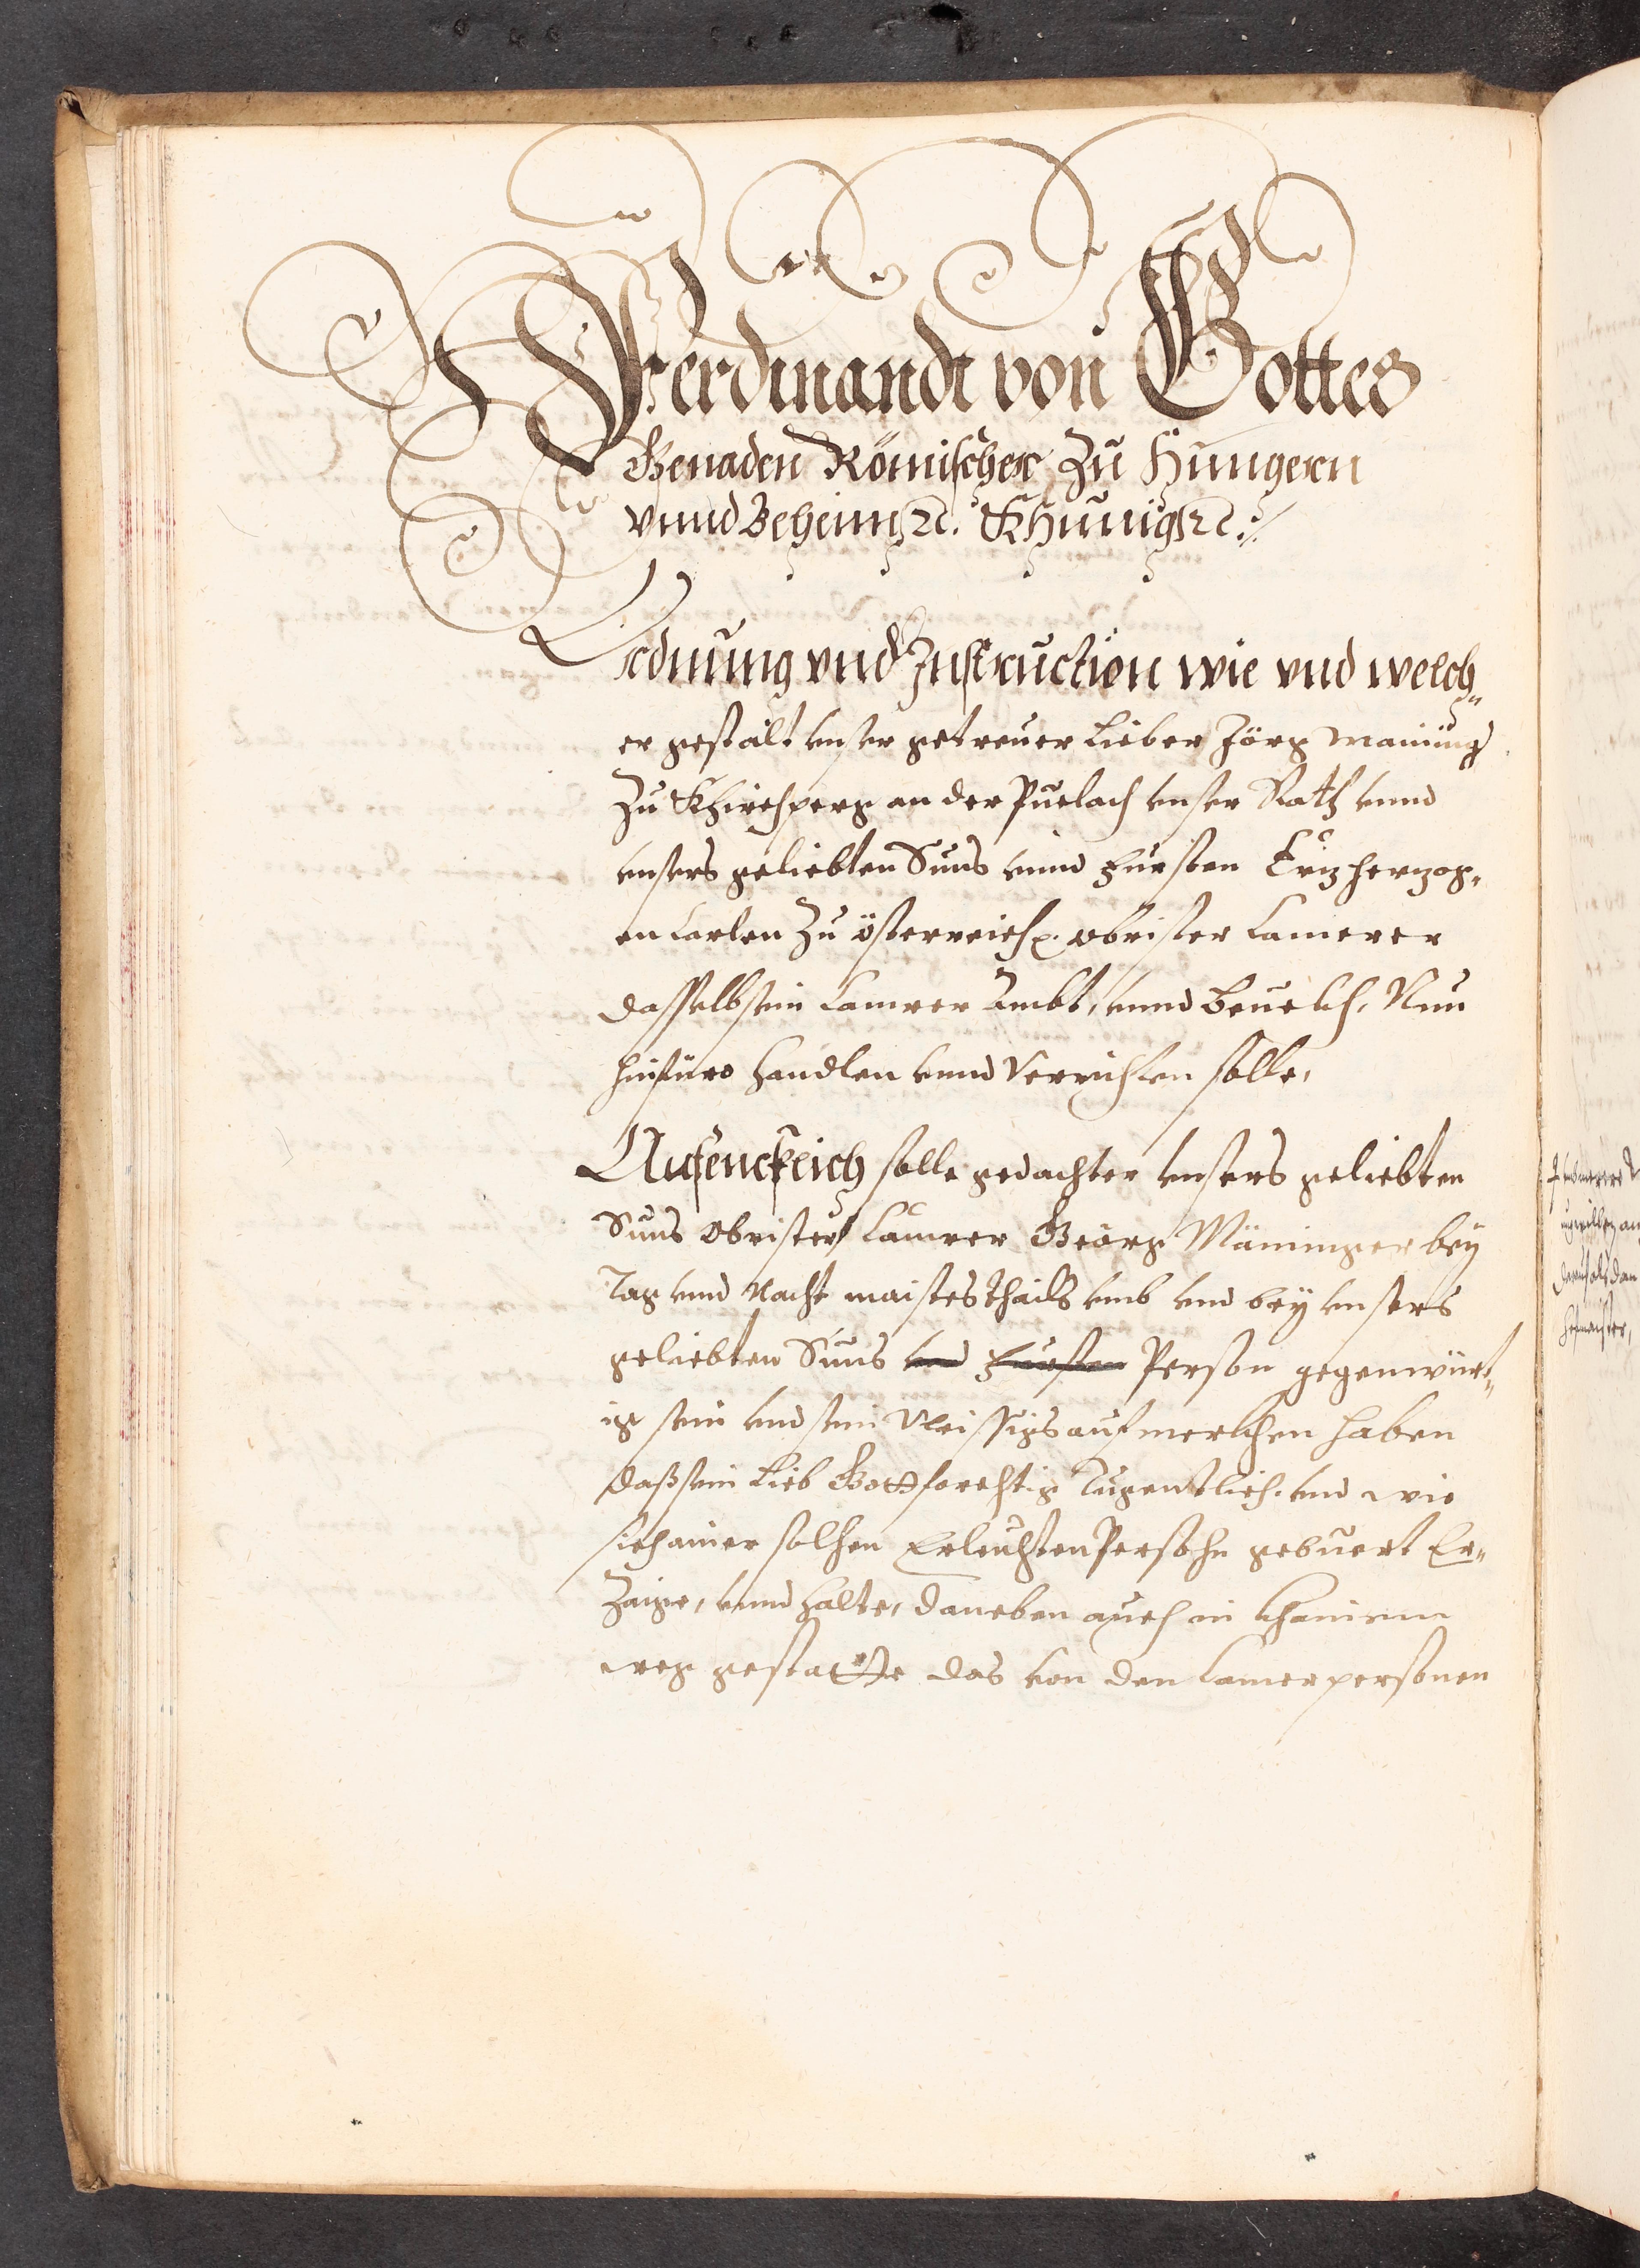 Ferdinandt von Gottes
Genaden Römischer Zu Hungern
vnnd Beheim etc. Khunig etc.
Ordnung vnd Instruction wie vnd welch„
er gestalt vnser getreuer Lieber Jörg Maining
Zu Khirchperg an der Puelach vnser Rath vnnd
vnsers geliebten Suns vnnd Fursten Ertzhertzog„
en Carlen Zu österreich etc. obrister Camerer
dasselb sein Camrer Ambt, vnnd Beuelch, Nun
hinfüro handlen vnnd Verrichten solle,
Anfencklich solle gedachter vnsers geliebten
Suns Obrister Camrer Georg Mäninger bey
Tag vnnd Nacht maistes thails vmb vnd bey vnsers
geliebten Suns vnd Fursten Person gegenwürt„
ig sein vnd sein Vleissigs aufmerkhen haben
daß sein Lieb Gottsforchtig Tugentlich, vnd wie
sich ainer solhen Erleuchten Persohn gebuert Er„
Zaige, vnnd halte, daneben auch in khainem
weg gestatte das von den Camerpersonen
hofmaister,